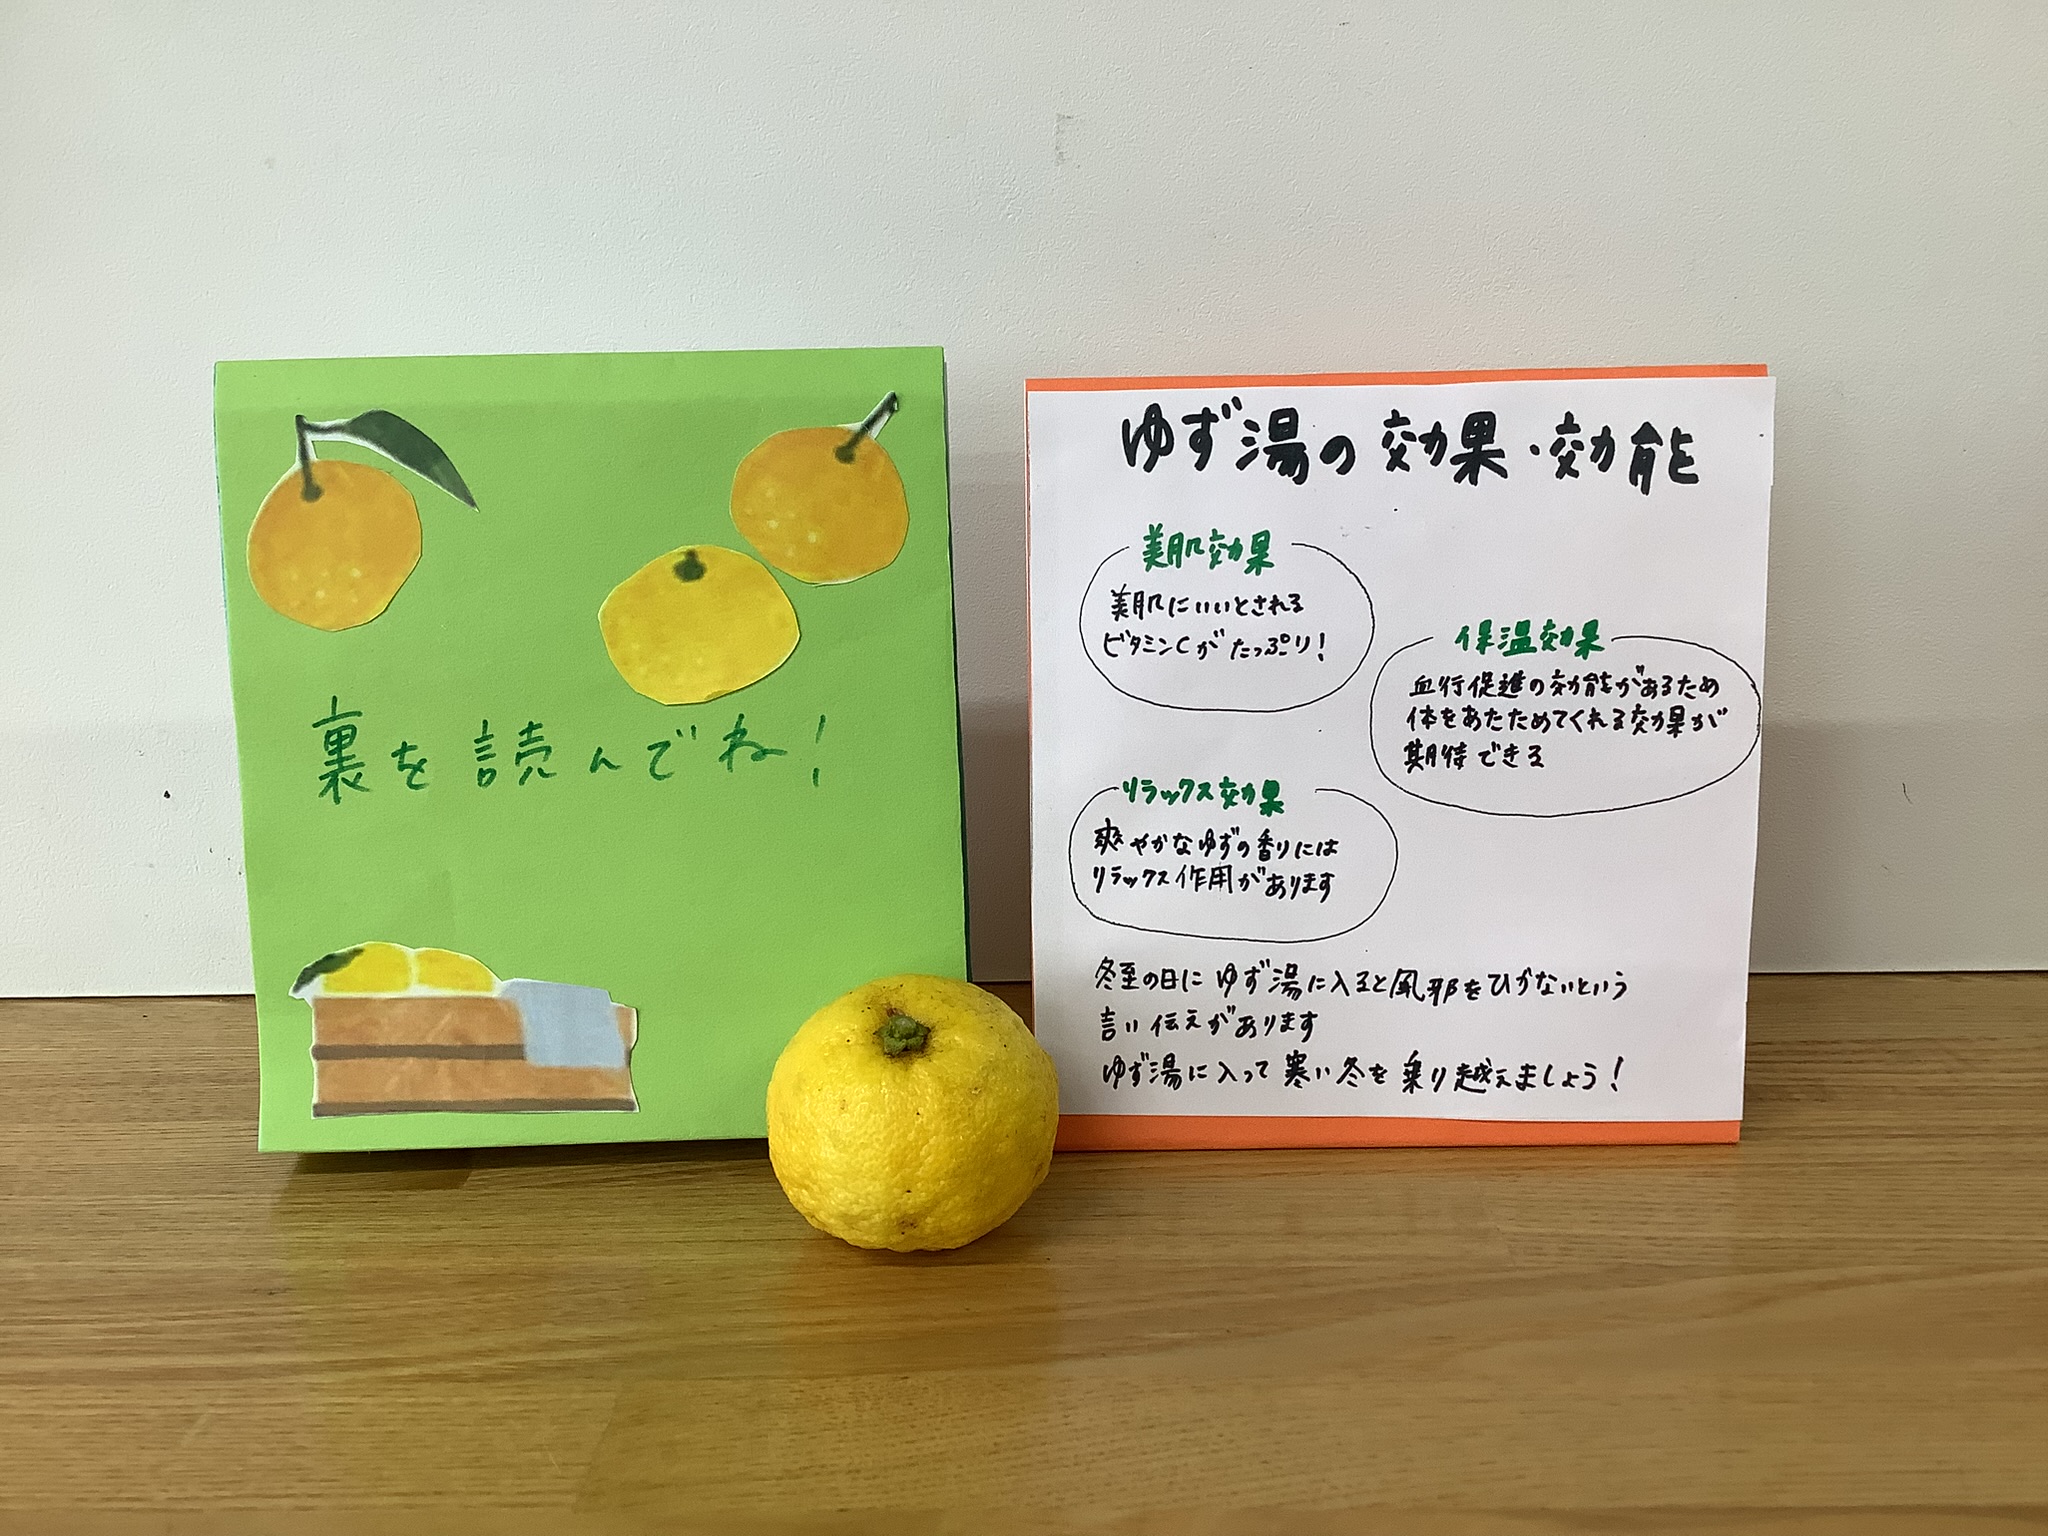 裏を読んでね!
ゆず湯の効果・効能
美肌効果
美肌にいいとされる
ビタミンCがたっぷり!
保温効果
血行促進の効能があるため
体をあたためてくれる効果が
期待できる
リラックス効果
爽やかなゆずの香りには
リラックス作用があります
冬至の日にゆず湯に入ると風邪をひかないという
言い伝えがあります
ゆず湯に入って寒い冬を乗り越えましょう!